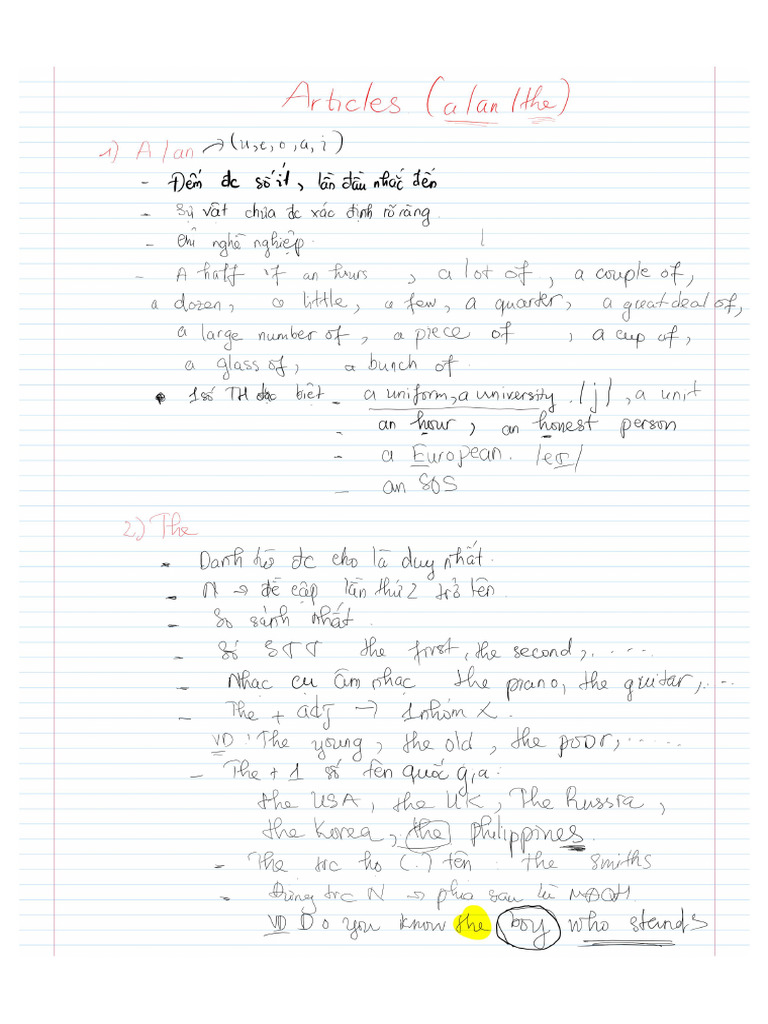 Articles (a/an/the)
1) A/an → (u,e,o,a,i)
- Đếm đc số ít, lần đầu nhắc đến
- Sự vật chưa đc xác định rõ ràng.
- Chỉ nghề nghiệp.
- A half if an hours, a lot of, a couple of,
a dozen, a little, a few, a quarter, a great deal of,
a large number of, a piece of, a cup of,
a glass of, a bunch of.
• 1 số TH đặc biệt - a uniform, a university. /j/, a unit
- an hour, an honest person
- a European.
- an SOS
2) The
- Danh từ đc cho là duy nhất.
- N → đề cập lần thứ 2 trở lên.
- So sánh nhất.
- Số STT the first, the second,.....
- Nhạc cụ âm nhạc the piano, the guitar,...
- The + adj → 1 nhóm
VD: The young, the old, the poor,.....
- The + 1 số tên quốc gia:
the USA, the UK, The Russia,
the Korea, the Philippines.
- The trc họ (.) tên: the smiths
- Đứng trc N → phía sau là MĐQH.
VD Do you know the boy who stands